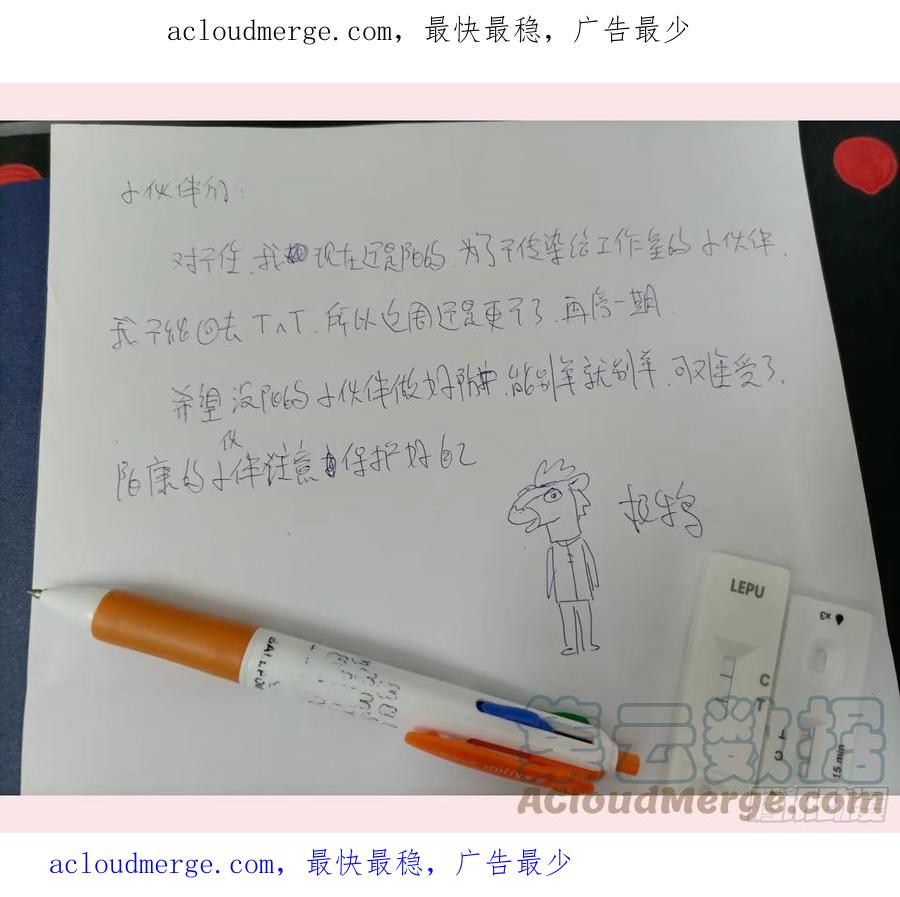 acloudmerge.com，最快最稳，广告最少
小伙伴们：
对不住，我现在还是阳的，为了不传染给工作室的小伙伴，
我不能回去TAT，所以这周还是更不了，再停一期．
希望没阳的小伙伴做好防护，能别羊就别羊，可难受了，
阳康的小伙伴注意保护好自己
LEPU
C
T
X3
C
T
15 min
集云数据
AcloudMerge.com
acloudmerge.com，最快最稳，广告最少